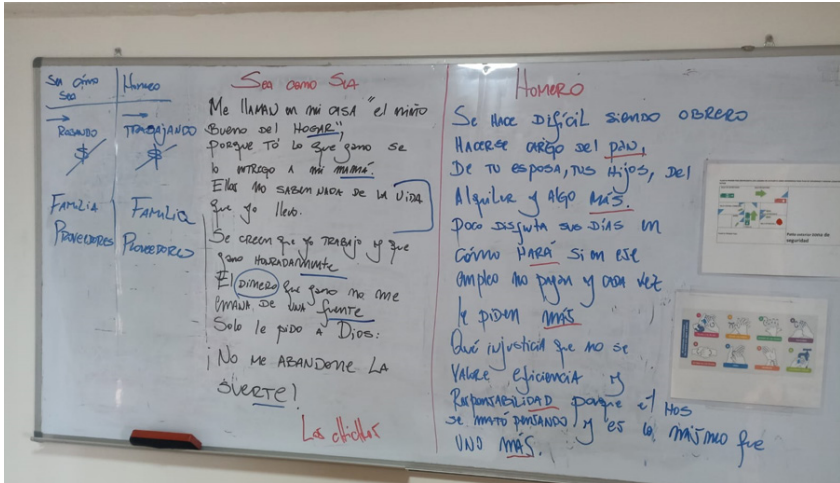 Sea como
Sea
Homero
ROBANDO
TRABAJANDO
$
$
FAMILIA
FAMILIA
PROVEEDORES
PROVEEDORES
Sea como Sea
Me llaman en mi casa "el niño
bueno del HOGAR",
porque to lo que gano se
lo entrego a mi mamá.
Ellos no saben nada de la vida
que yo llevo.
Se creen que yo trabajo y que
gano honradamente
El dinero que gano no me
emana de una fuente
Solo le pido a Dios:
¡No me abandone la
suerte!
HOMERO
Se hace difícil siendo obrero
hacerse cargo del pan,
De tu esposa, tus hijos, del
Alquiler y algo más.
poco disfruta sus días en
cómo hará si en ese
empleo no pagan y cada vez
le piden más
Qué injusticia que no se
valore eficiencia y
Responsabilidad porque el
se mató pensando y es lo mismo que
uno más.
seguridad